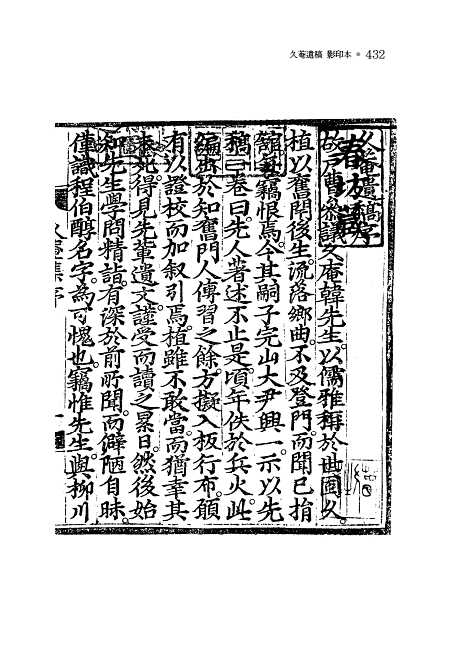 久菴遺稿 影印本 432
久菴遺稿序
故戶曹參議久庵韓先生。以儒雅稱於世固久。
植以舊閈後生。流落鄉曲。不及登門。而聞已捐
館舍。竊恨焉。今其嗣子完山大尹興一。示以先
稿二卷曰。先人著述不止是。頃年佚於兵火。此
編出於知舊門人傳習之餘。方擬入板行布。願
有以證校而加叙引焉。植雖不敢當。而猶幸其
未死。得見先輩遺文。謹受而讀之累日。然後始
知先生學問精詣。有深於前所聞。而僻陋自昧。
僅識程伯醇名字。為可愧也。竊惟先生。與柳川
久菴集序
一